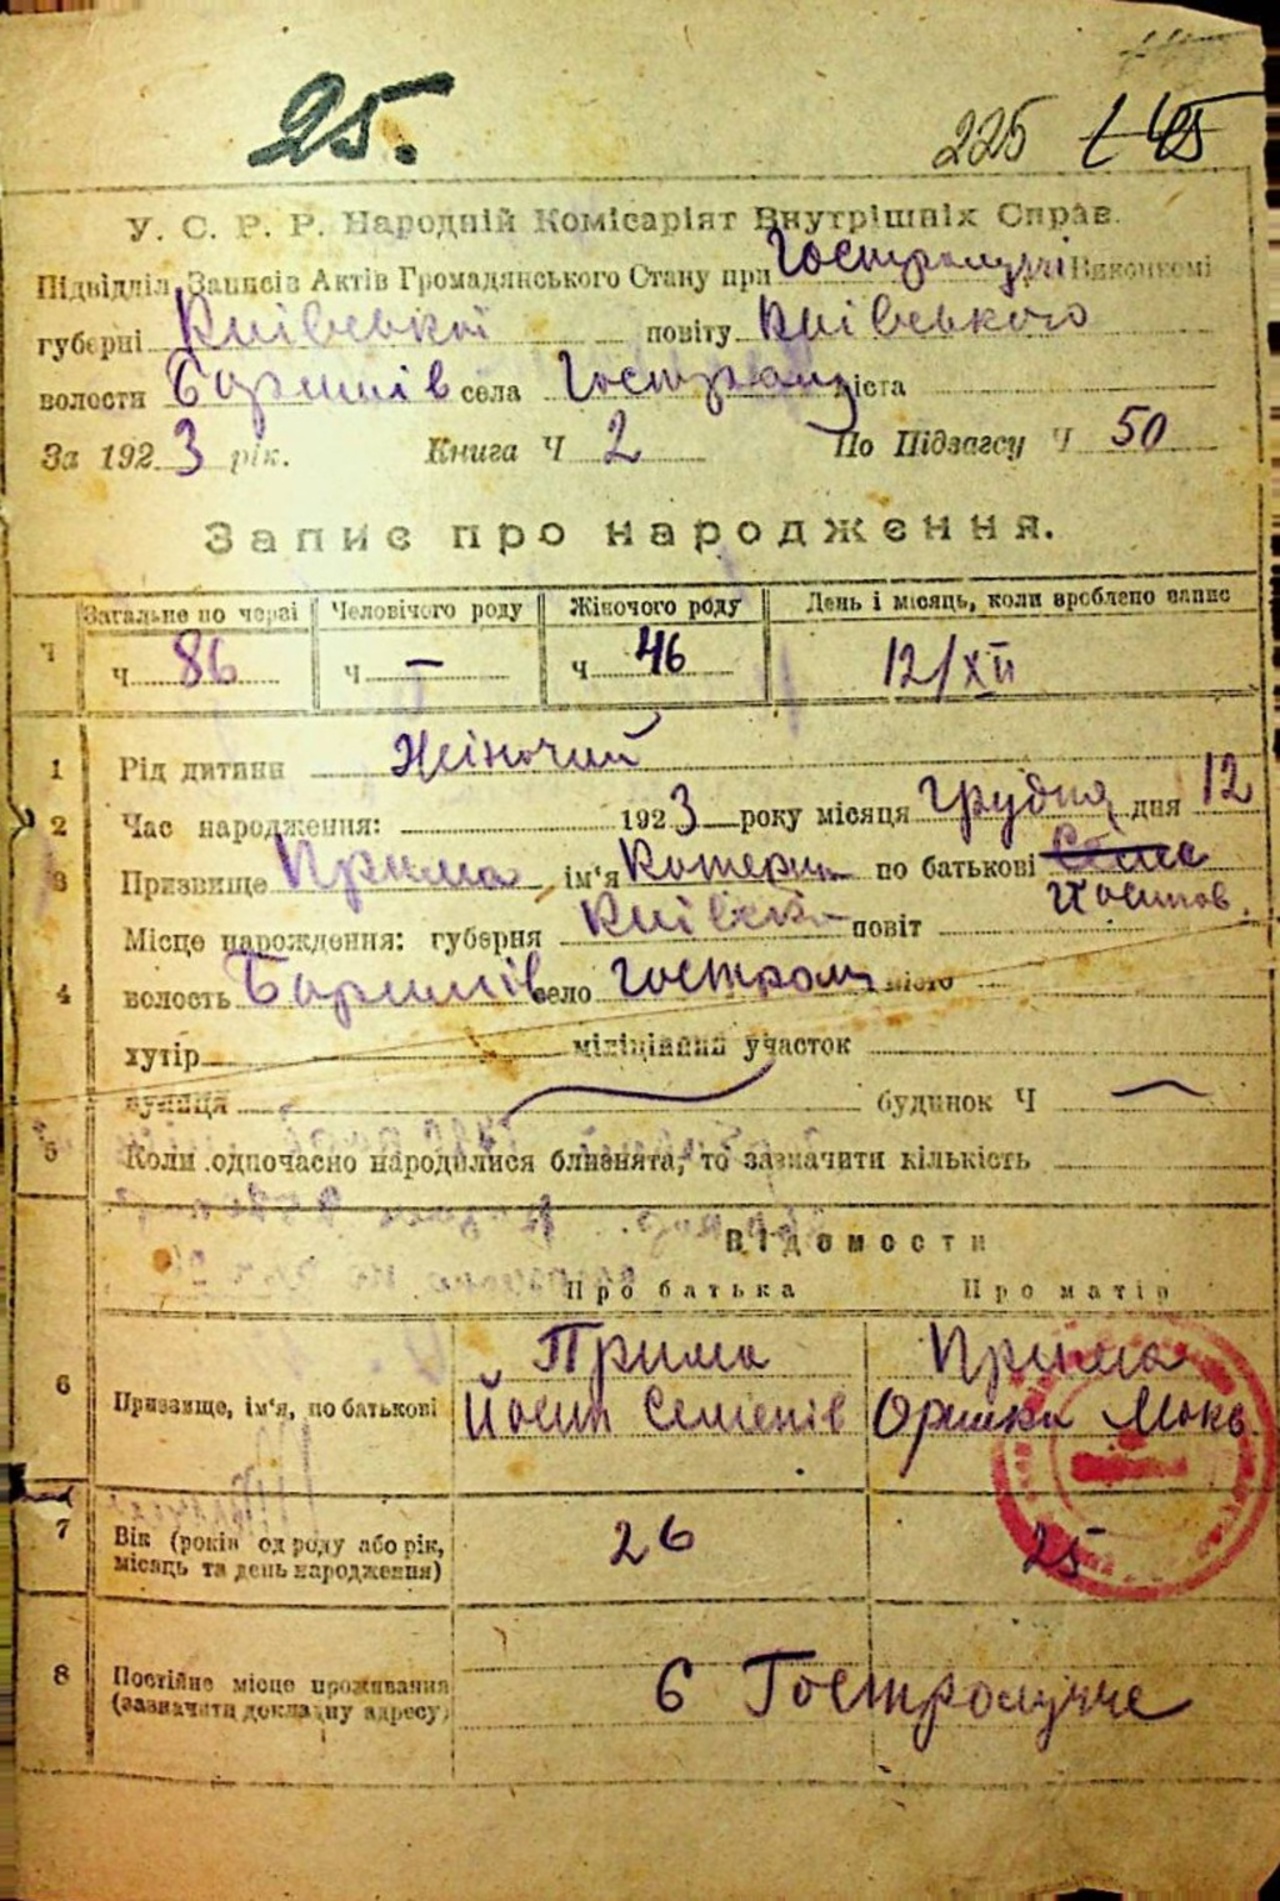 25.
225 145
У. С. Р. Р. Народній Комісаріят Внутрішніх Справ.
Підвідділ Записів Актів Громадянського Стану при Гостролуччі Виконкомі
губерні Київської повіту Київського
волости Баришів села Гостролу міста
За 1923 рік. Книга Ч 2 По Підзагсу Ч 50
Запис про народження.
Загальне по черзі Человічого роду Жіночого роду День і місяць, коли зроблено запис
Ч Ч 86 Ч — Ч 46 12/XII
1 Рід дитини Жіночий
2 Час народження: 1923 року місяця Грудня дня 12
3 Призвище Прима ім'я Катерин по батькові Семе
Йосипов.
Місце народження: губерня Київськ повіт
4 волость Баришів село Гострол місто
хутір міліційний участок
вулиця будинок Ч
5 Коли одночасно народилися близнята, то зазначити кількість
Відомости
Про батька Про матір
Прима Прима
6 Призвище, ім'я, по батькові Йосип Семенів Оришка Мокв
7 Вік (років од роду або рік, 26 25
місяць та день народження)
8 Постійне місце проживання с Гостролучче
(зазначити докладну адресу)